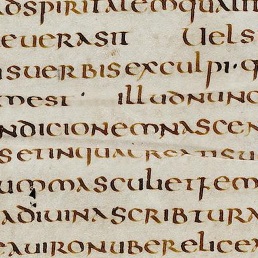 adspiritalemqualit
euerasit uels
isuerbisexculpi·q
mesi· illudnunc
ndicionemnascen
setinquacreatisu
ummasculietfem
adiuinascribtura
eauironuberelicea